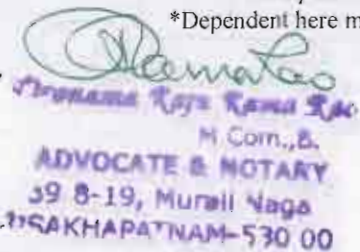 *Dependent here m
Rama Rao
Raju Rama Rao
M Com.,B.
ADVOCATE & NOTARY
39 8-19, Murali Naga
VISAKHAPATNAM-530 00